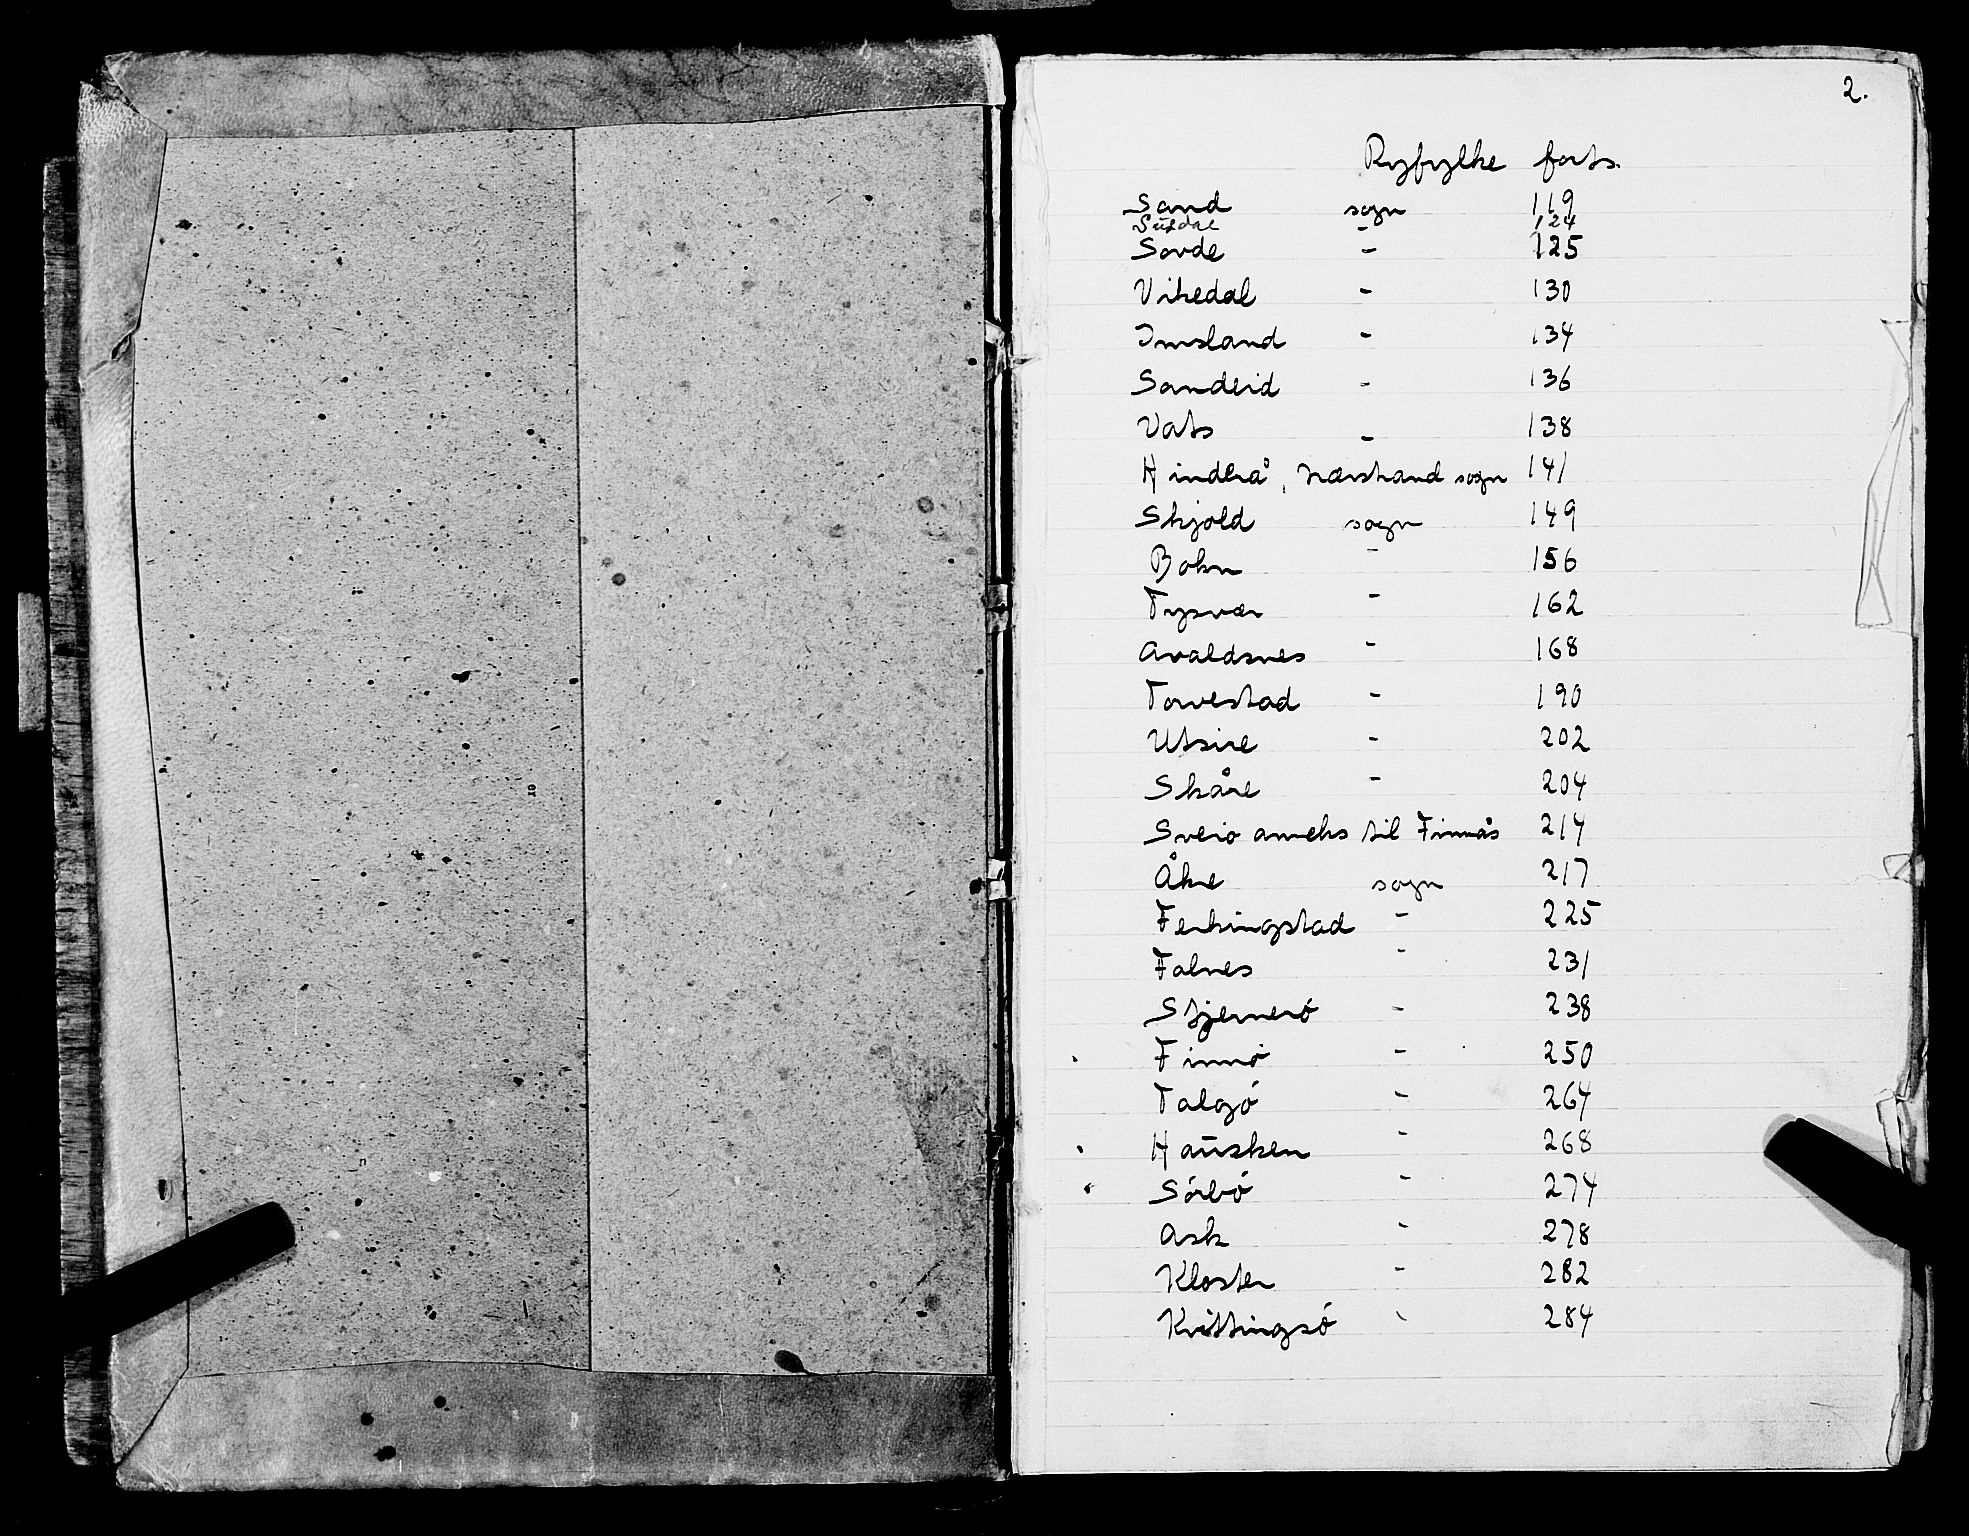 2.
Ryfylke forts.
Sand sogn 119
Suldal - 124
Sovde - 125
Vikedal - 130
Imsland - 134
Sandeid - 136
Vats - 138
Hindrå, Nærstrand sogn 141
Skjold sogn 149
Bokn - 156
Tysvær - 162
Avaldsnes - 168
Torvestad - 190
Utsire - 202
Skåre - 204
Sveio anneks til Finnås 214
Åkre sogn 217
Ferkingstad - 225
Falnes - 231
Stjernerö - 238
Finnö - 250
Talgö - 264
Hausken - 268
Sörbö - 274
Ask - 278
Kloster - 282
Kvittingsö - 284